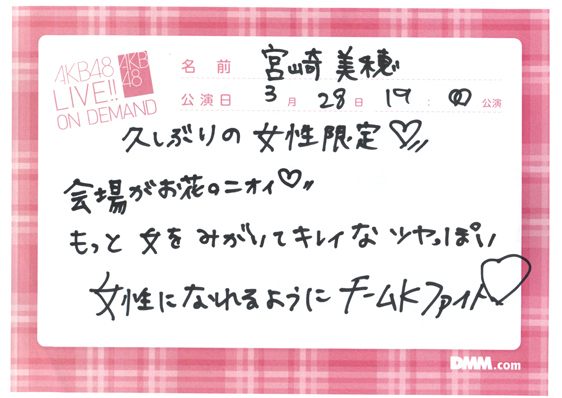 AKB48
LIVE!!
ON DEMAND
AKB
48
名前 宮崎美穂
公演日 3月28日19:00公演
久しぶりの女性限定♡〃
会場がお花のニオイ♡〃
もっと女をみがいてキレイなツヤっぽい
女性になれるようにチームKファイト♡
DMM.com